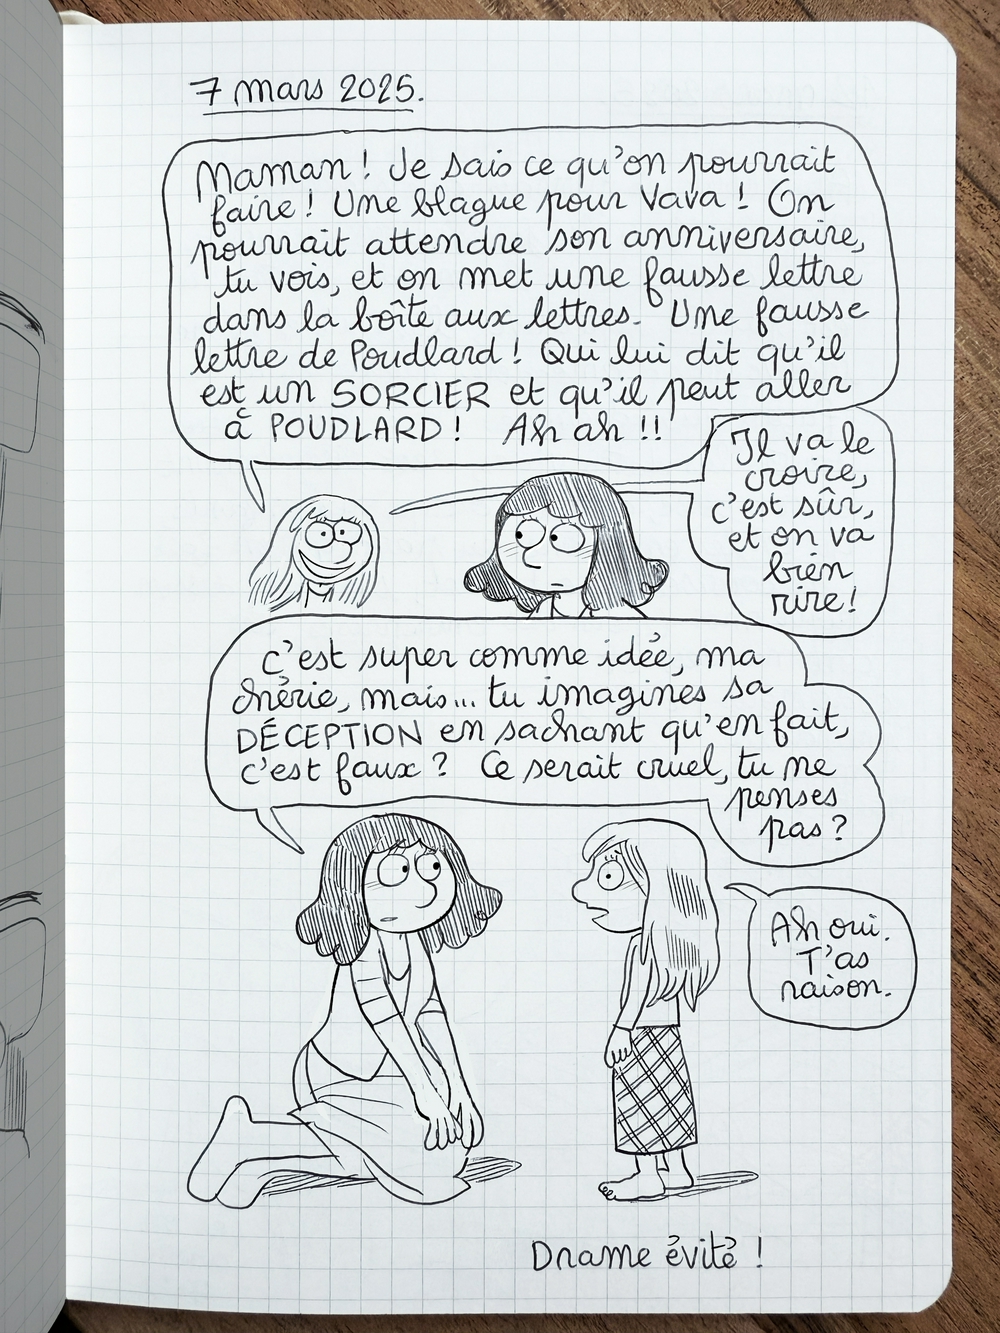 7 mars 2025.
Maman ! Je sais ce qu'on pourrait
faire ! Une blague pour Vava ! On
pourrait attendre son anniversaire,
tu vois, et on met une fausse lettre
dans la boîte aux lettres. Une fausse
lettre de Poudlard ! Qui lui dit qu'il
est un SORCIER et qu'il peut aller
à POUDLARD ! Ah ah !!
Il va le
croire,
c'est sûr,
et on va
bien
rire !
C'est super comme idée, ma
chérie, mais... tu imagines sa
DÉCEPTION en sachant qu'en fait,
c'est faux ? Ce serait cruel, tu ne
penses
pas ?
Ah oui.
T'as
raison.
Drame évité !